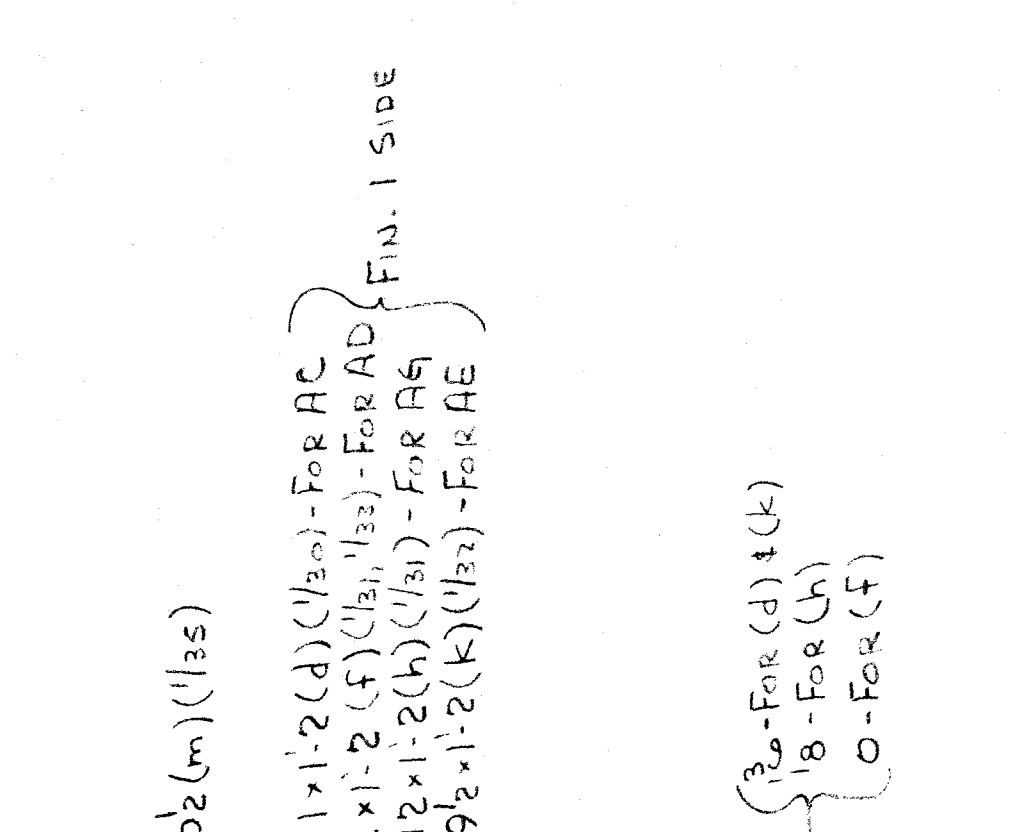 2(m)(1/35)
1×1'-2(d)(1/30)-FOR AC
×1'-2(f)(1/31, 1/33)-FOR AD
12×1'-2(h)(1/31)-FOR AG
9 1/2×1'-2(k)(1/32)-FOR AE
FIN. 1 SIDE
-FOR (d) & (k)
18-FOR (h)
0-FOR (f)